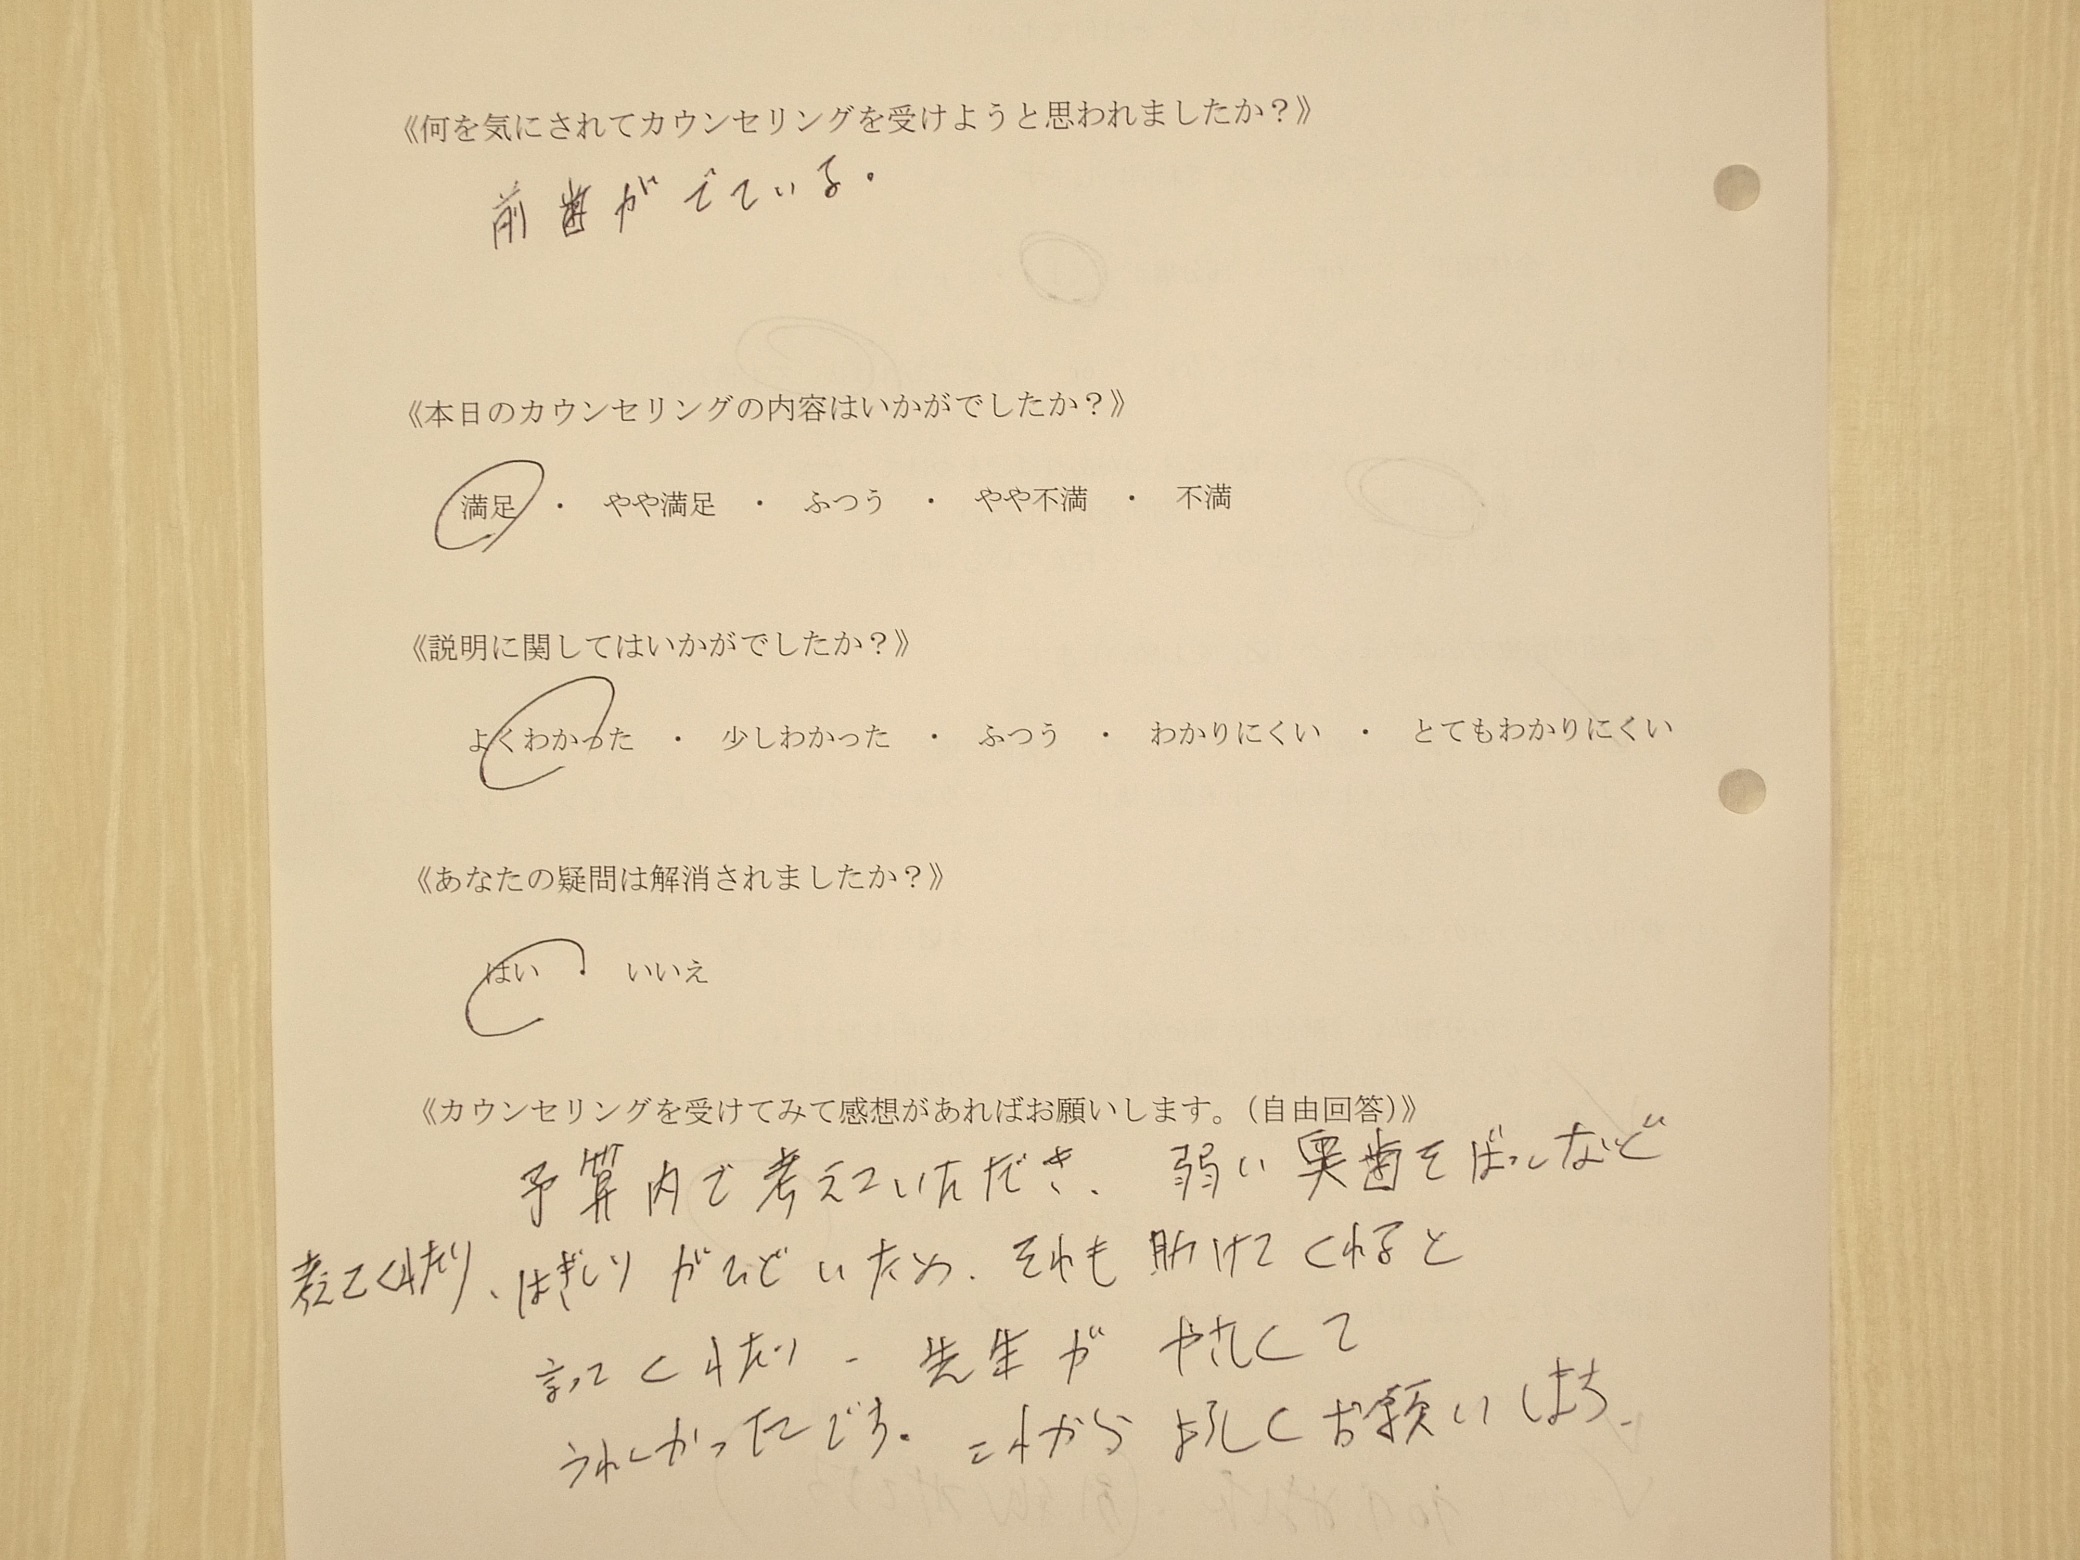 《何を気にされてカウンセリングを受けようと思われましたか？》
前歯がでている。
《本日のカウンセリングの内容はいかがでしたか？》
満足 ・ やや満足 ・ ふつう ・ やや不満 ・ 不満
《説明に関してはいかがでしたか？》
よくわかった ・ 少しわかった ・ ふつう ・ わかりにくい ・ とてもわかりにくい
《あなたの疑問は解消されましたか？》
はい ・ いいえ
《カウンセリングを受けてみて感想があればお願いします。（自由回答）》
予算内で考えていただき、弱い奥歯をばっしなど
考えてくれたり、はぎしりがひどいため、それも助けてくれると
言ってくれたり、先生がやさしくて
うれしかったです。これから よろしくお願いします。